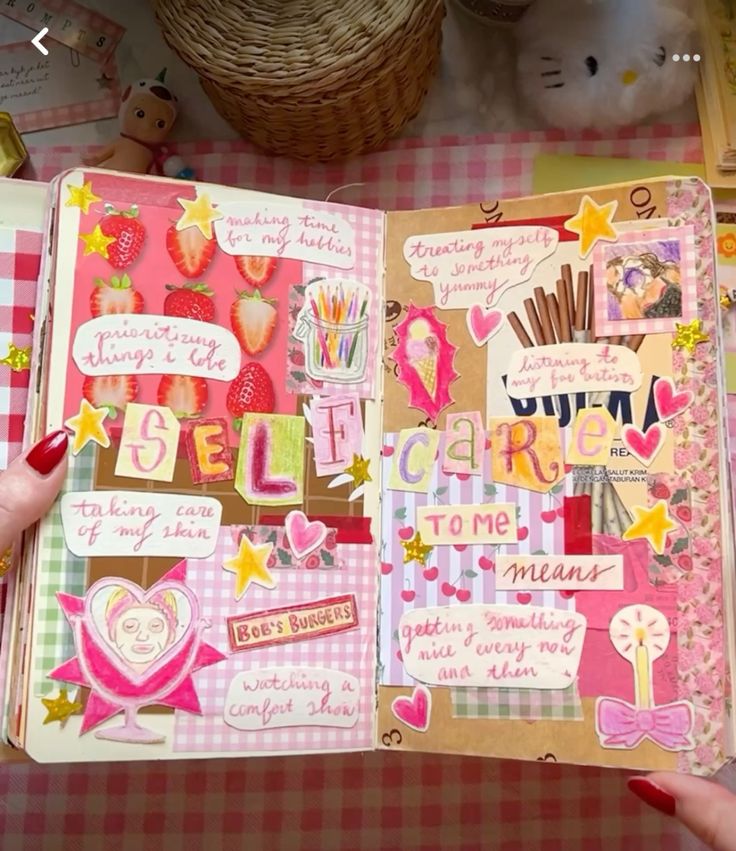 PROMPTS
making time
for my hobbies
prioritizing
things i love
SELF
taking care
of my skin
BOB'S BURGERS
watching a
comfort show
treating myself
to something
yummy
listening to
my fav artists
CARE
TO ME
means
getting something
nice every now
and then
3